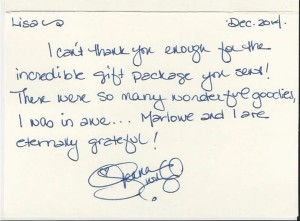 Lisa
Dec. 2014.
I can't thank you enough for the
incredible gift package you sent!
There were so many wonderful goodies,
I was in awe... Marlowe and I are
eternally grateful!